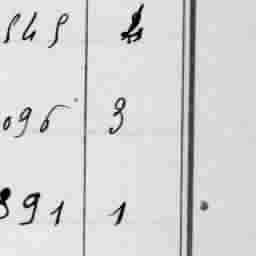 545 4
096 3
891 1